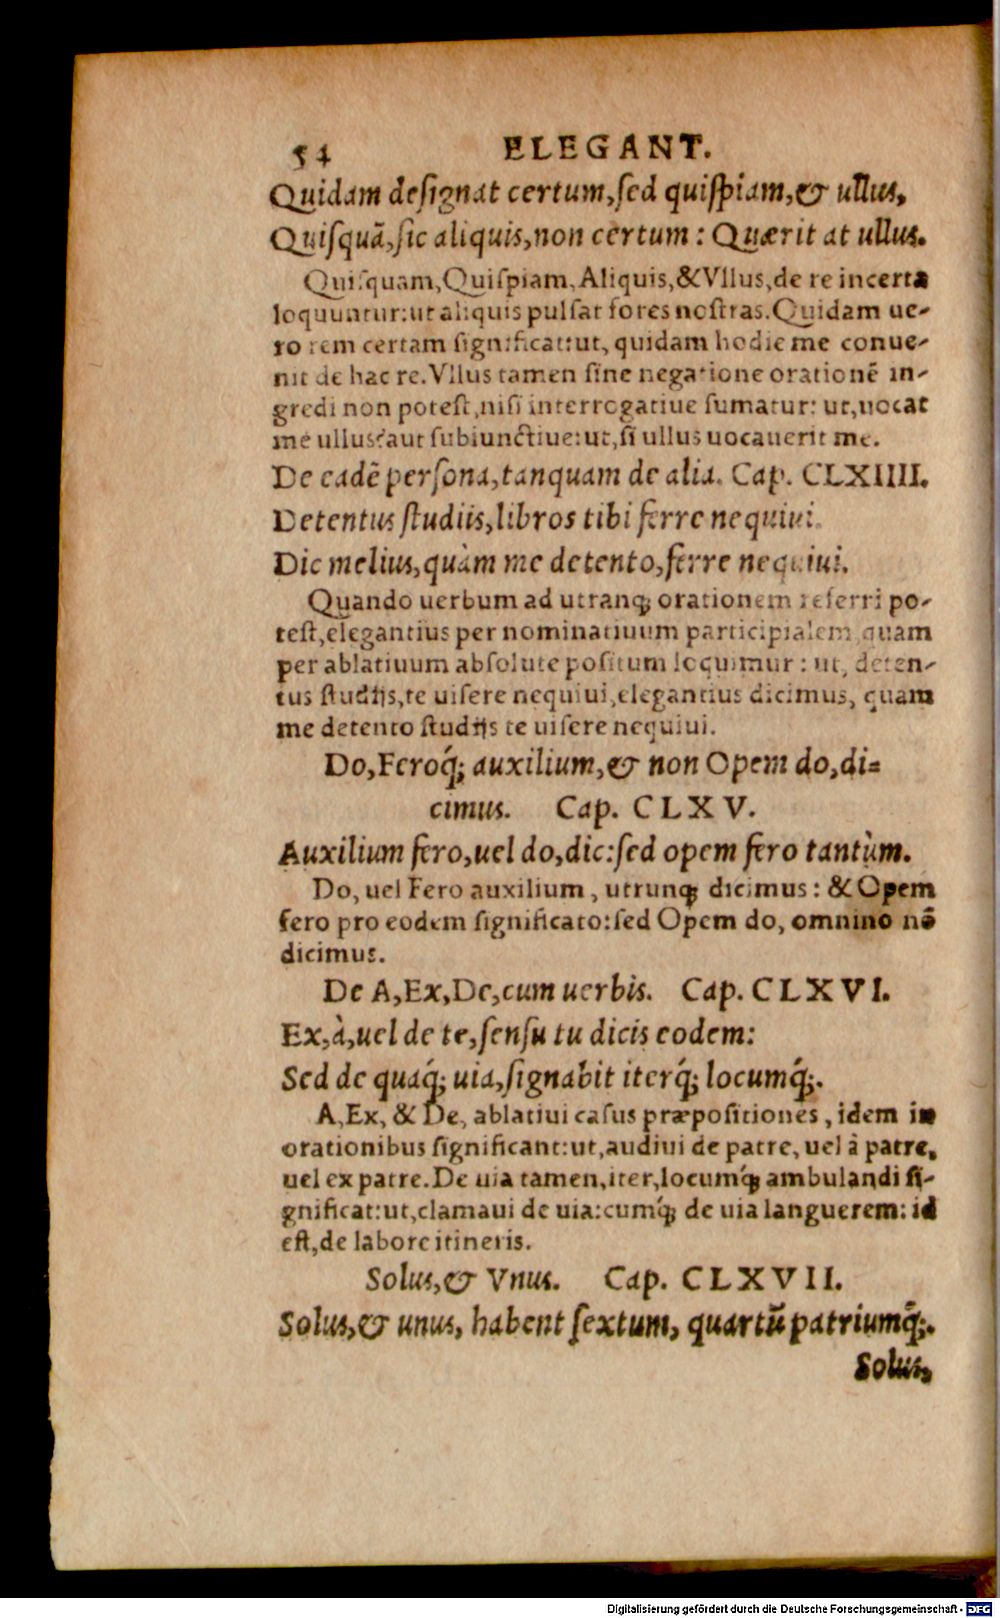 54 ELEGANT.
Quidam deſignat certum,ſed quiſpiam,& ullus,
Quiſquã,ſic aliquis,non certum: Quærit at ullus.
Quiſquam,Quiſpiam,Aliquis,&Vllus,de re incerta
loquuntur:ut aliquis pulſat fores noſtras.Quidam ue-
ro rem certam ſignificat:ut, quidam hodie me conue-
nit de hac re.Vllus tamen ſine negatione orationẽ in-
gredi non poteſt,niſi interrogatiue ſumatur: ut,uocat
me ullus?aut ſubiunctiue:ut,ſi ullus uocauerit me.
De eadẽ perſona,tanquam de alia. Cap. CLXIIII.
Detentus ſtudiis,libros tibi ferre nequiui.
Dic melius,quàm me detento,ferre nequiui.
Quando uerbum ad utranq; orationem referri po-
teſt,elegantius per nominatiuum participialem quam
per ablatiuum abſolute poſitum loquimur: ut, deten-
tus ſtudijs,te uiſere nequiui,elegantius dicimus, quam
me detento ſtudijs te uiſere nequiui.
Do,Feroq́; auxilium,& non Opem do,di=
cimus. Cap. CLXV.
Auxilium fero,uel do,dic:ſed opem fero tantùm.
Do, uel Fero auxilium, utrunq; dicimus: & Opem
fero pro eodem ſignificato:ſed Opem do, omnino nõ
dicimus.
De A,Ex,De,cum uerbis. Cap. CLXVI.
Ex,à,uel de te,ſenſu tu dicis eodem:
Sed de quaq́; uia,ſignabit iterq́; locumq́;.
A,Ex, & De, ablatiui caſus præpoſitiones, idem in
orationibus ſignificant:ut,audiui de patre, uel à patre,
uel ex patre.De uia tamen,iter,locumq́; ambulandi ſi-
gnificat:ut,clamaui de uia:cumq́; de uia languerem: id
eſt,de labore itineris.
Solus,& Vnus. Cap. CLXVII.
Solus,& unus, habent ſextum, quartũ patriumq́;.
Solus,
Digitalisierung gefördert durch die Deutsche Forschungsgemeinschaft - DFG